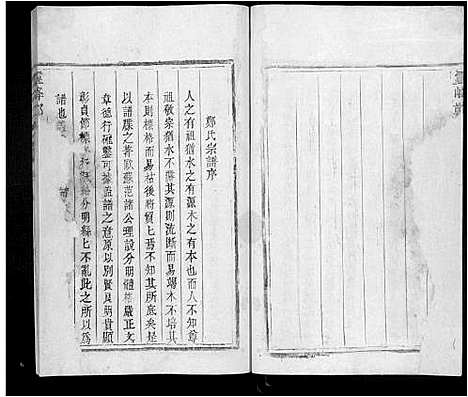 鄭氏宗譜序
人之有祖猶水之有源木之有本也而人不知尊
祖敬宗猶水不濬其源則流斷而易竭木不培其
本則標榦而易枯後將貿匕焉不知其所底矣是
以譜牒之著歐蘇范諸公理說分明體格嚴正文
章德行確鑿可據蓋譜之意原以別賢良明貴顯
彰貞節標 分明絲匕不亂此之所以為
譜也